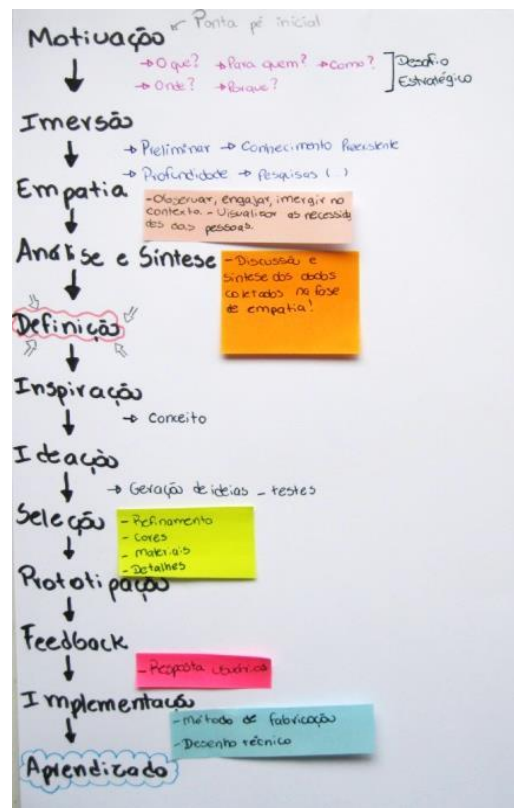 Motivação Ponta pé inicial
→ O que? → Para quem? → Como? Desafio
→ Onde? → Porque? Estratégico
Imersão
→ Preliminar → Conhecimento Preexistente
→ Profundidade → Pesquisas (...)
Empatia
- Observar, engajar, imergir no
contexto. - Visualizar as necessida
des das pessoas.
Análise e Síntese
- Discussão e
síntese dos dados
coletados na fase
de empatia!
Definição
Inspiração
→ Conceito
Ideação
→ Geração de ideias - testes
Seleção
- Refinamento
- Cores
- Materiais
- Detalhes
Prototipação
Feedback
- Resposta usuários
Implementação
- Método de fabricação
- Desenho técnico
Aprendizado